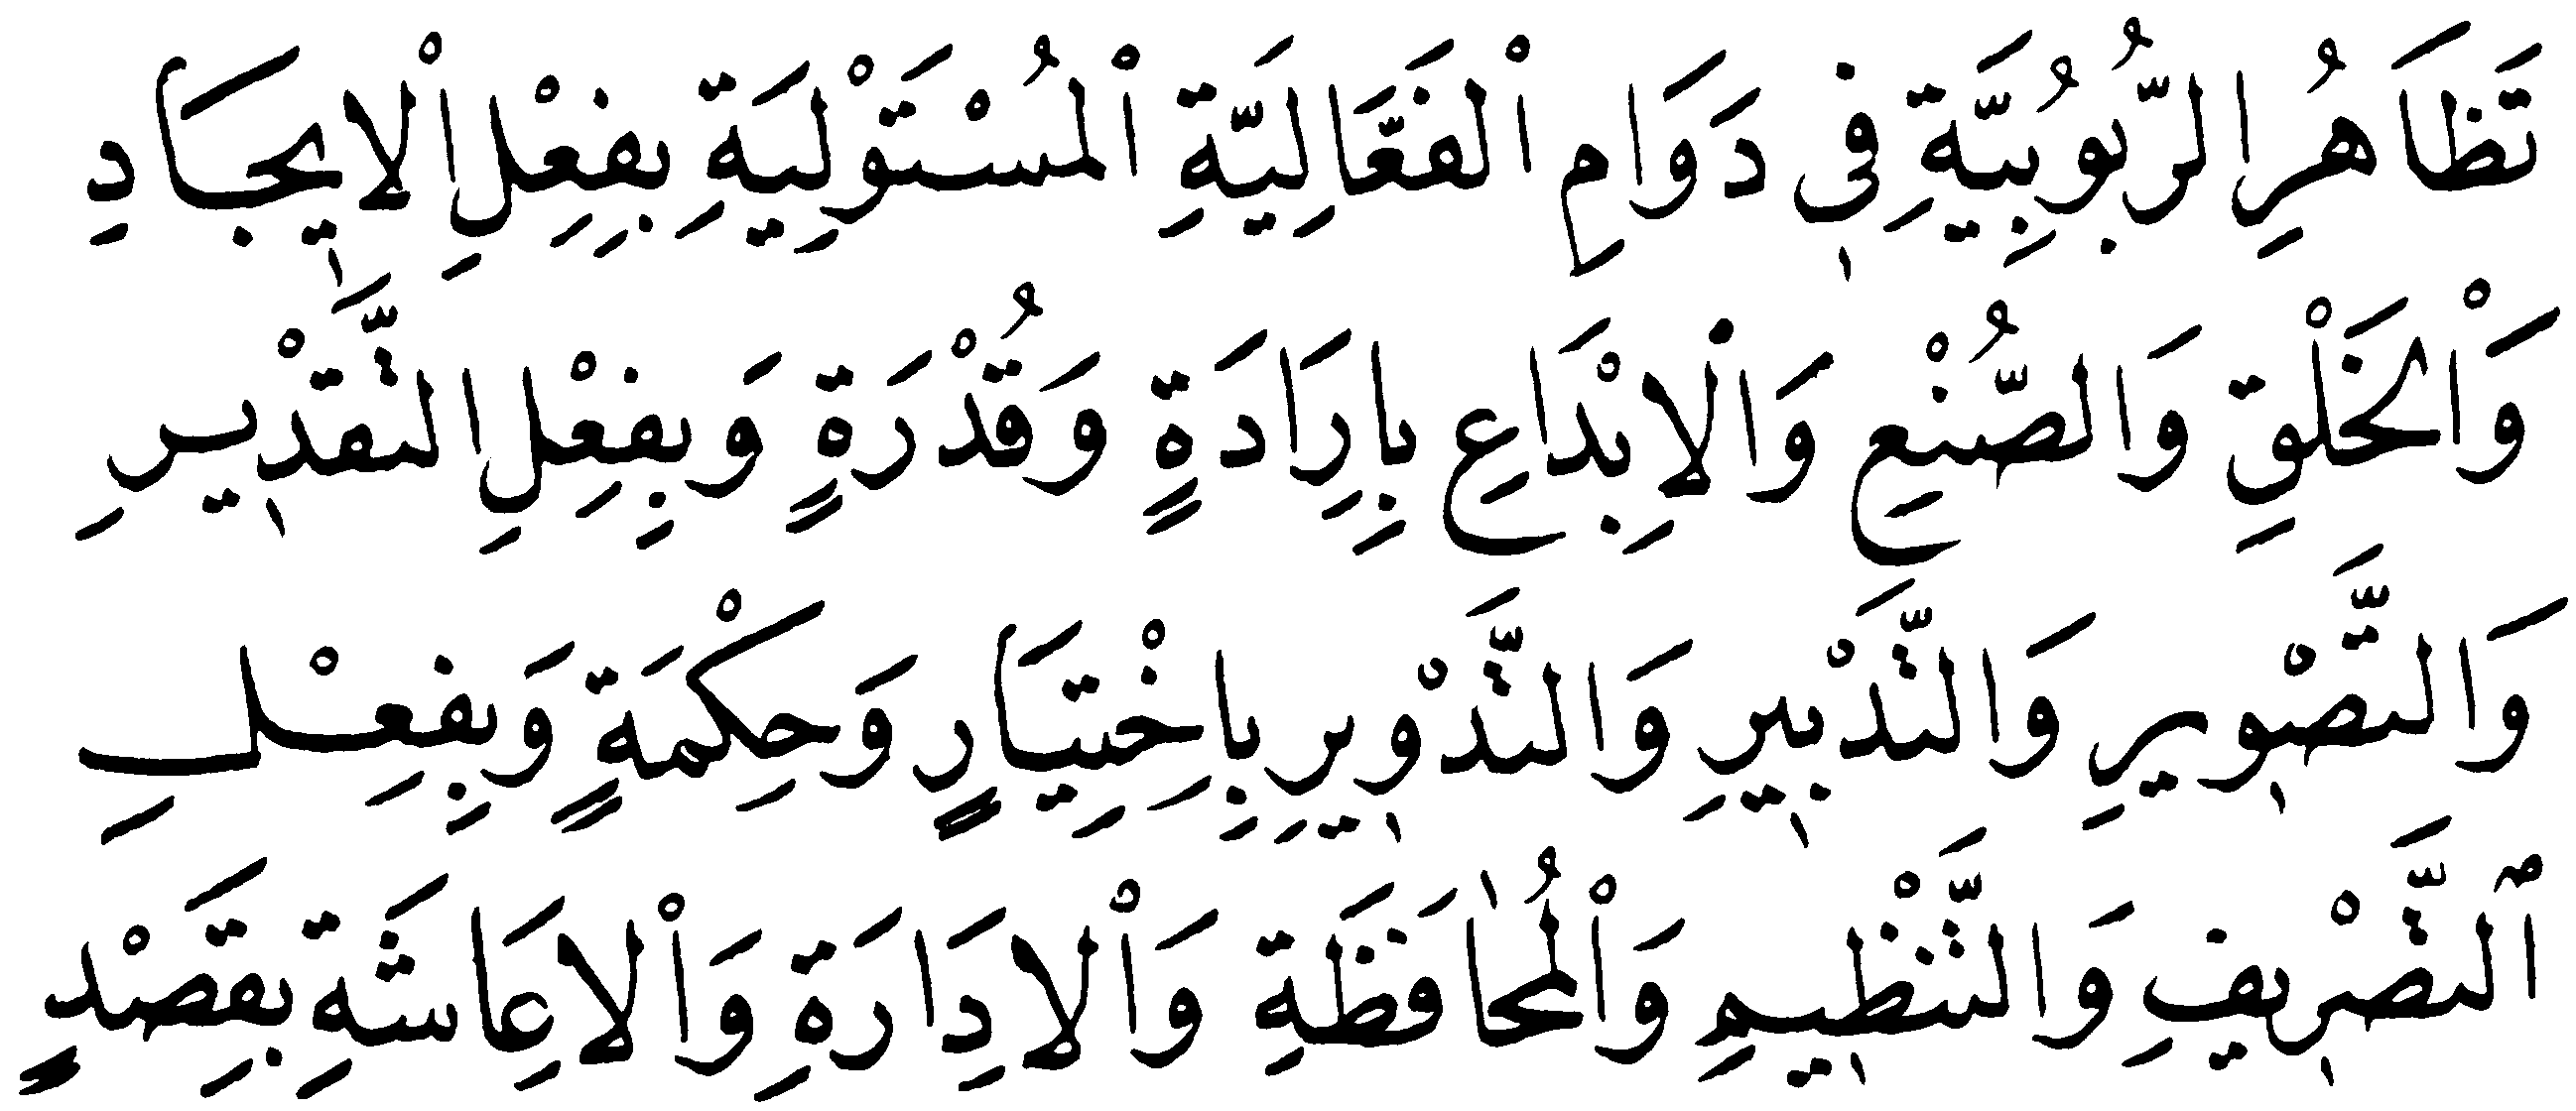 تَظَاهُرِ الرُّبُوبِيَّةِ فِي دَوَامِ الْفَعَّالِيَّةِ الْمُسْتَوْلِيَةِ بِفِعْلِ الْاِيجَادِ
وَالْخَلْقِ وَالصُّنْعِ وَالْاِبْدَاعِ بِاِرَادَةٍ وَقُدْرَةٍ وَبِفِعْلِ التَّقْدِيرِ
وَالتَّصْوِيرِ وَالتَّدْبِيرِ وَالتَّدْوِيرِ بِاِخْتِيَارٍ وَحِكْمَةٍ وَبِفِعْلِ
التَّصْرِيفِ وَالتَّنْظِيمِ وَالْمُحَافَظَةِ وَالْاِدَارَةِ وَالْاِعَاشَةِ بِقَصْدٍ